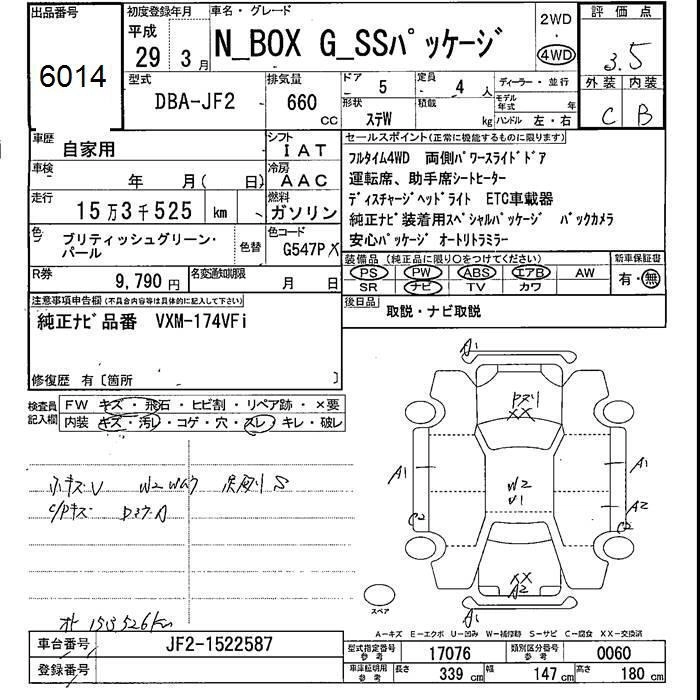 出品番号
6014
初度登録年月
平成
29年 3月
車名・グレード
N_BOX G_SSパッケージ
2WD
4WD
評価点
3.5
外装 内装
C B
型式
DBA-JF2
排気量
660 CC
ドア
5
定員
4 人
形状
ステW
積載
kg
ディーラー・並行
モデル年式 年
ハンドル 左・右
車歴
自家用
シフト
IAT
車検
年 月( 日)
冷房
AAC
走行
15万3千525 km
燃料
ガソリン
色
ブリティッシュグリーン・
パール
色替
色コード
G547P X
R券
9,790円
名変通知期限
月 日
セールスポイント(正常に機能するものに限ります)
フルタイム4WD 両側パワースライドドア
運転席、助手席シートヒーター
ディスチャージヘッドライト ETC車載器
純正ナビ装着用スペシャルパッケージ バックカメラ
安心パッケージ オートリトラミラー
装備品(純正品に限り○をつけてください)
PS PW ABS エアB AW
SR ナビ TV カワ
新車保証書
有・無
後日品
取説・ナビ取説
注意事項申告欄(不具合内容等は具体的に記入して下さい)
純正ナビ品番 VXM-174VFi
修復歴 有〔箇所 〕
検査員
記入欄
FW キズ・飛石・ヒビ割・リペア跡・×要
内装 キズ・汚レ・コゲ・穴・スレ・キレ・破レ
A1
XX
A1
A1
W2
A2
C2
C2
XX
A2
A1
スペア
153526km
A-キズ E-エクボ U-凹み W-補修跡 S-サビ C-腐食 XX-交換済
車台番号
JF2-1522587
登録番号
型式指定番号
参考
17076
類別区分番号
参考
0060
車庫証明用
参考
長さ 339 cm 幅 147 cm 高さ 180 cm